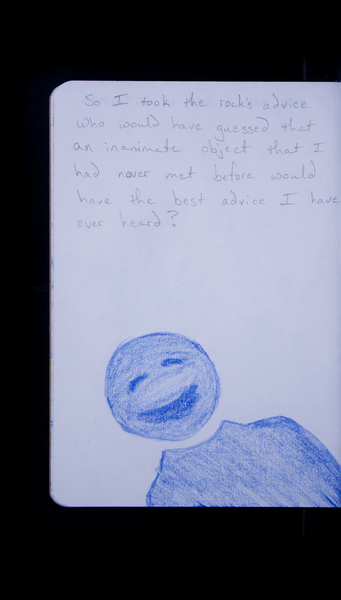 So I took the rock's advice
who would have guessed that
an inanimate object that I
had never met before would
have the best advice I have
ever heard?